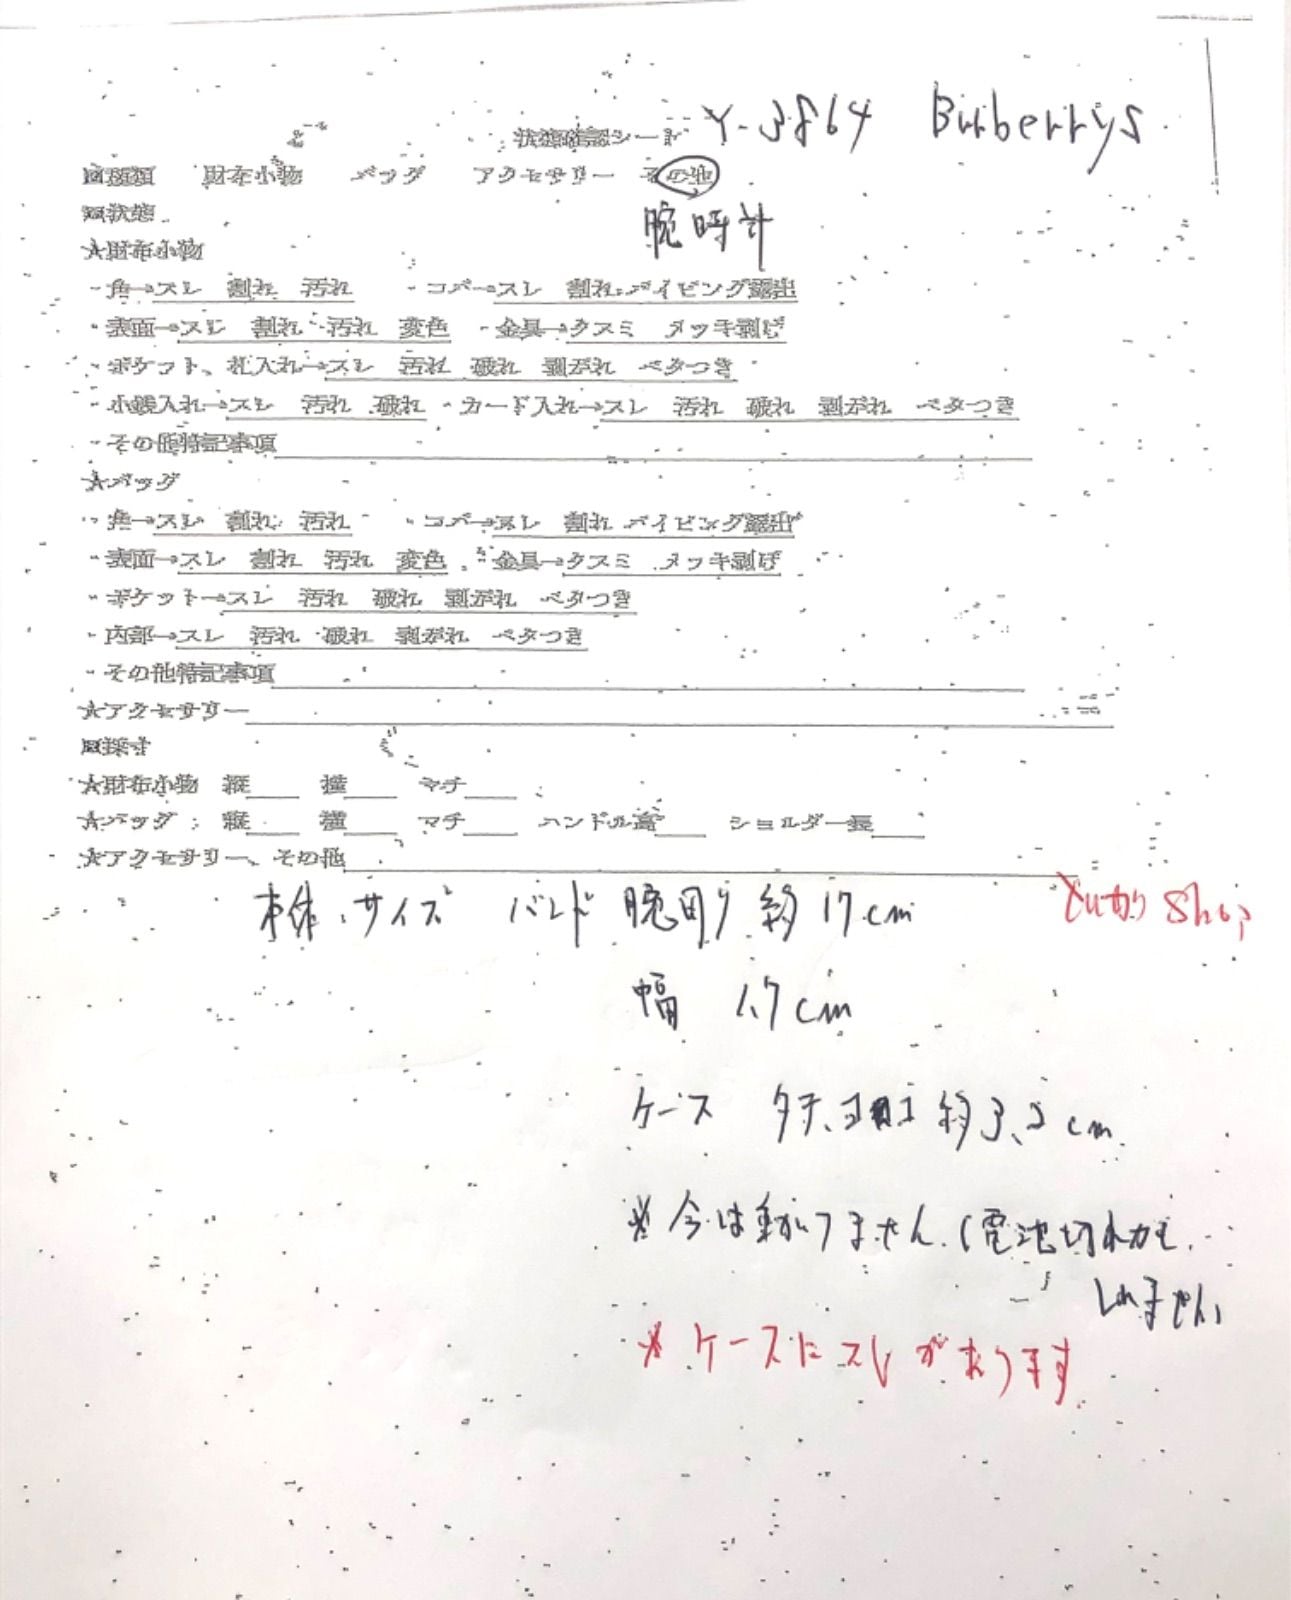 状態確認シート Y-3864 Burberrys
□種類 財布小物 バッグ アクセサリー その他
腕時計
□状態
★財布小物
・角→スレ 割れ 汚れ ・コバ→スレ 割れ パイピング露出
・表面→スレ 割れ 汚れ 変色 ・金具→クスミ メッキ剥げ
・ポケット、札入れ→スレ 汚れ 破れ 剥がれ ベタつき
・小銭入れ→スレ 汚れ 破れ ・カード入れ→スレ 汚れ 破れ 剥がれ ベタつき
・その他特記事項
★バッグ
・角→スレ 割れ 汚れ ・コバ→スレ 割れ パイピング露出
・表面→スレ 割れ 汚れ 変色 ・金具→クスミ メッキ剥げ
・ポケット→スレ 汚れ 破れ 剥がれ ベタつき
・内部→スレ 汚れ 破れ 剥がれ ベタつき
・その他特記事項
★アクセサリー
□採寸
★財布小物 縦 横 マチ
★バッグ 縦 横 マチ ハンドル高 ショルダー長
★アクセサリー、その他
本体、サイズ バンド 腕周り 約17cm
Shop
幅 1.7cm
ケース タテ、ヨコ 約3.2cm
※今は動いてません(電池切れかも
しれません)
※ケースにスレがあります